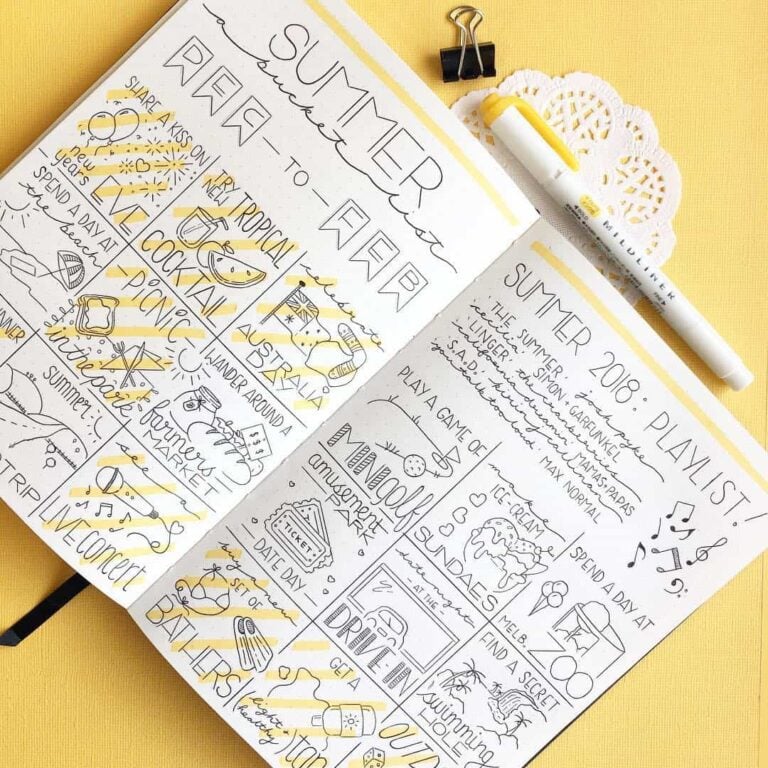 SUMMER
a bucket list
DEC
— TO —
FEB
SHARE A KISS ON
new
years
EVE
TRY
NEW
TROPICAL
COCKTAIL
celebrate
AUSTRALIA
SPEND A DAY AT
the beach
PICNIC
in the park
WANDER AROUND A
farmers
MARKET
summer
TRIP
see a
LIVE concert
SUMMER 2018: PLAYLIST!
THE SUMMER
SIMON + GARFUNKEL
LINGER
the cranberries
california dreamin'
MAMAS + PAPAS
S.A.D.
MAX NORMAL
PLAY A GAME OF
MINI golf
make
ICE-CREAM
SUNDAES
SPEND A DAY AT
MELB.
ZOO
amusement
PARK
TICKET
— DATE DAY —
date night
— AT THE —
DRIVE IN
FIND A SECRET
swimming
HOLE
buy a new
SET OF
BATHERS
GET A
light +
healthy
tan